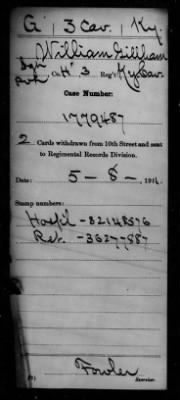 G | 3 Cav. | Ky.
William Gillham
Co. H 3 Reg't Ky. Cav.
Case Number:
1779487
2 Cards withdrawn from 10th Street and sent
to Regimental Records Division.
Date: 5-8-, 191
Stamp numbers:
Hosp'l - 32148576
Ret. - 36277887
Fowler